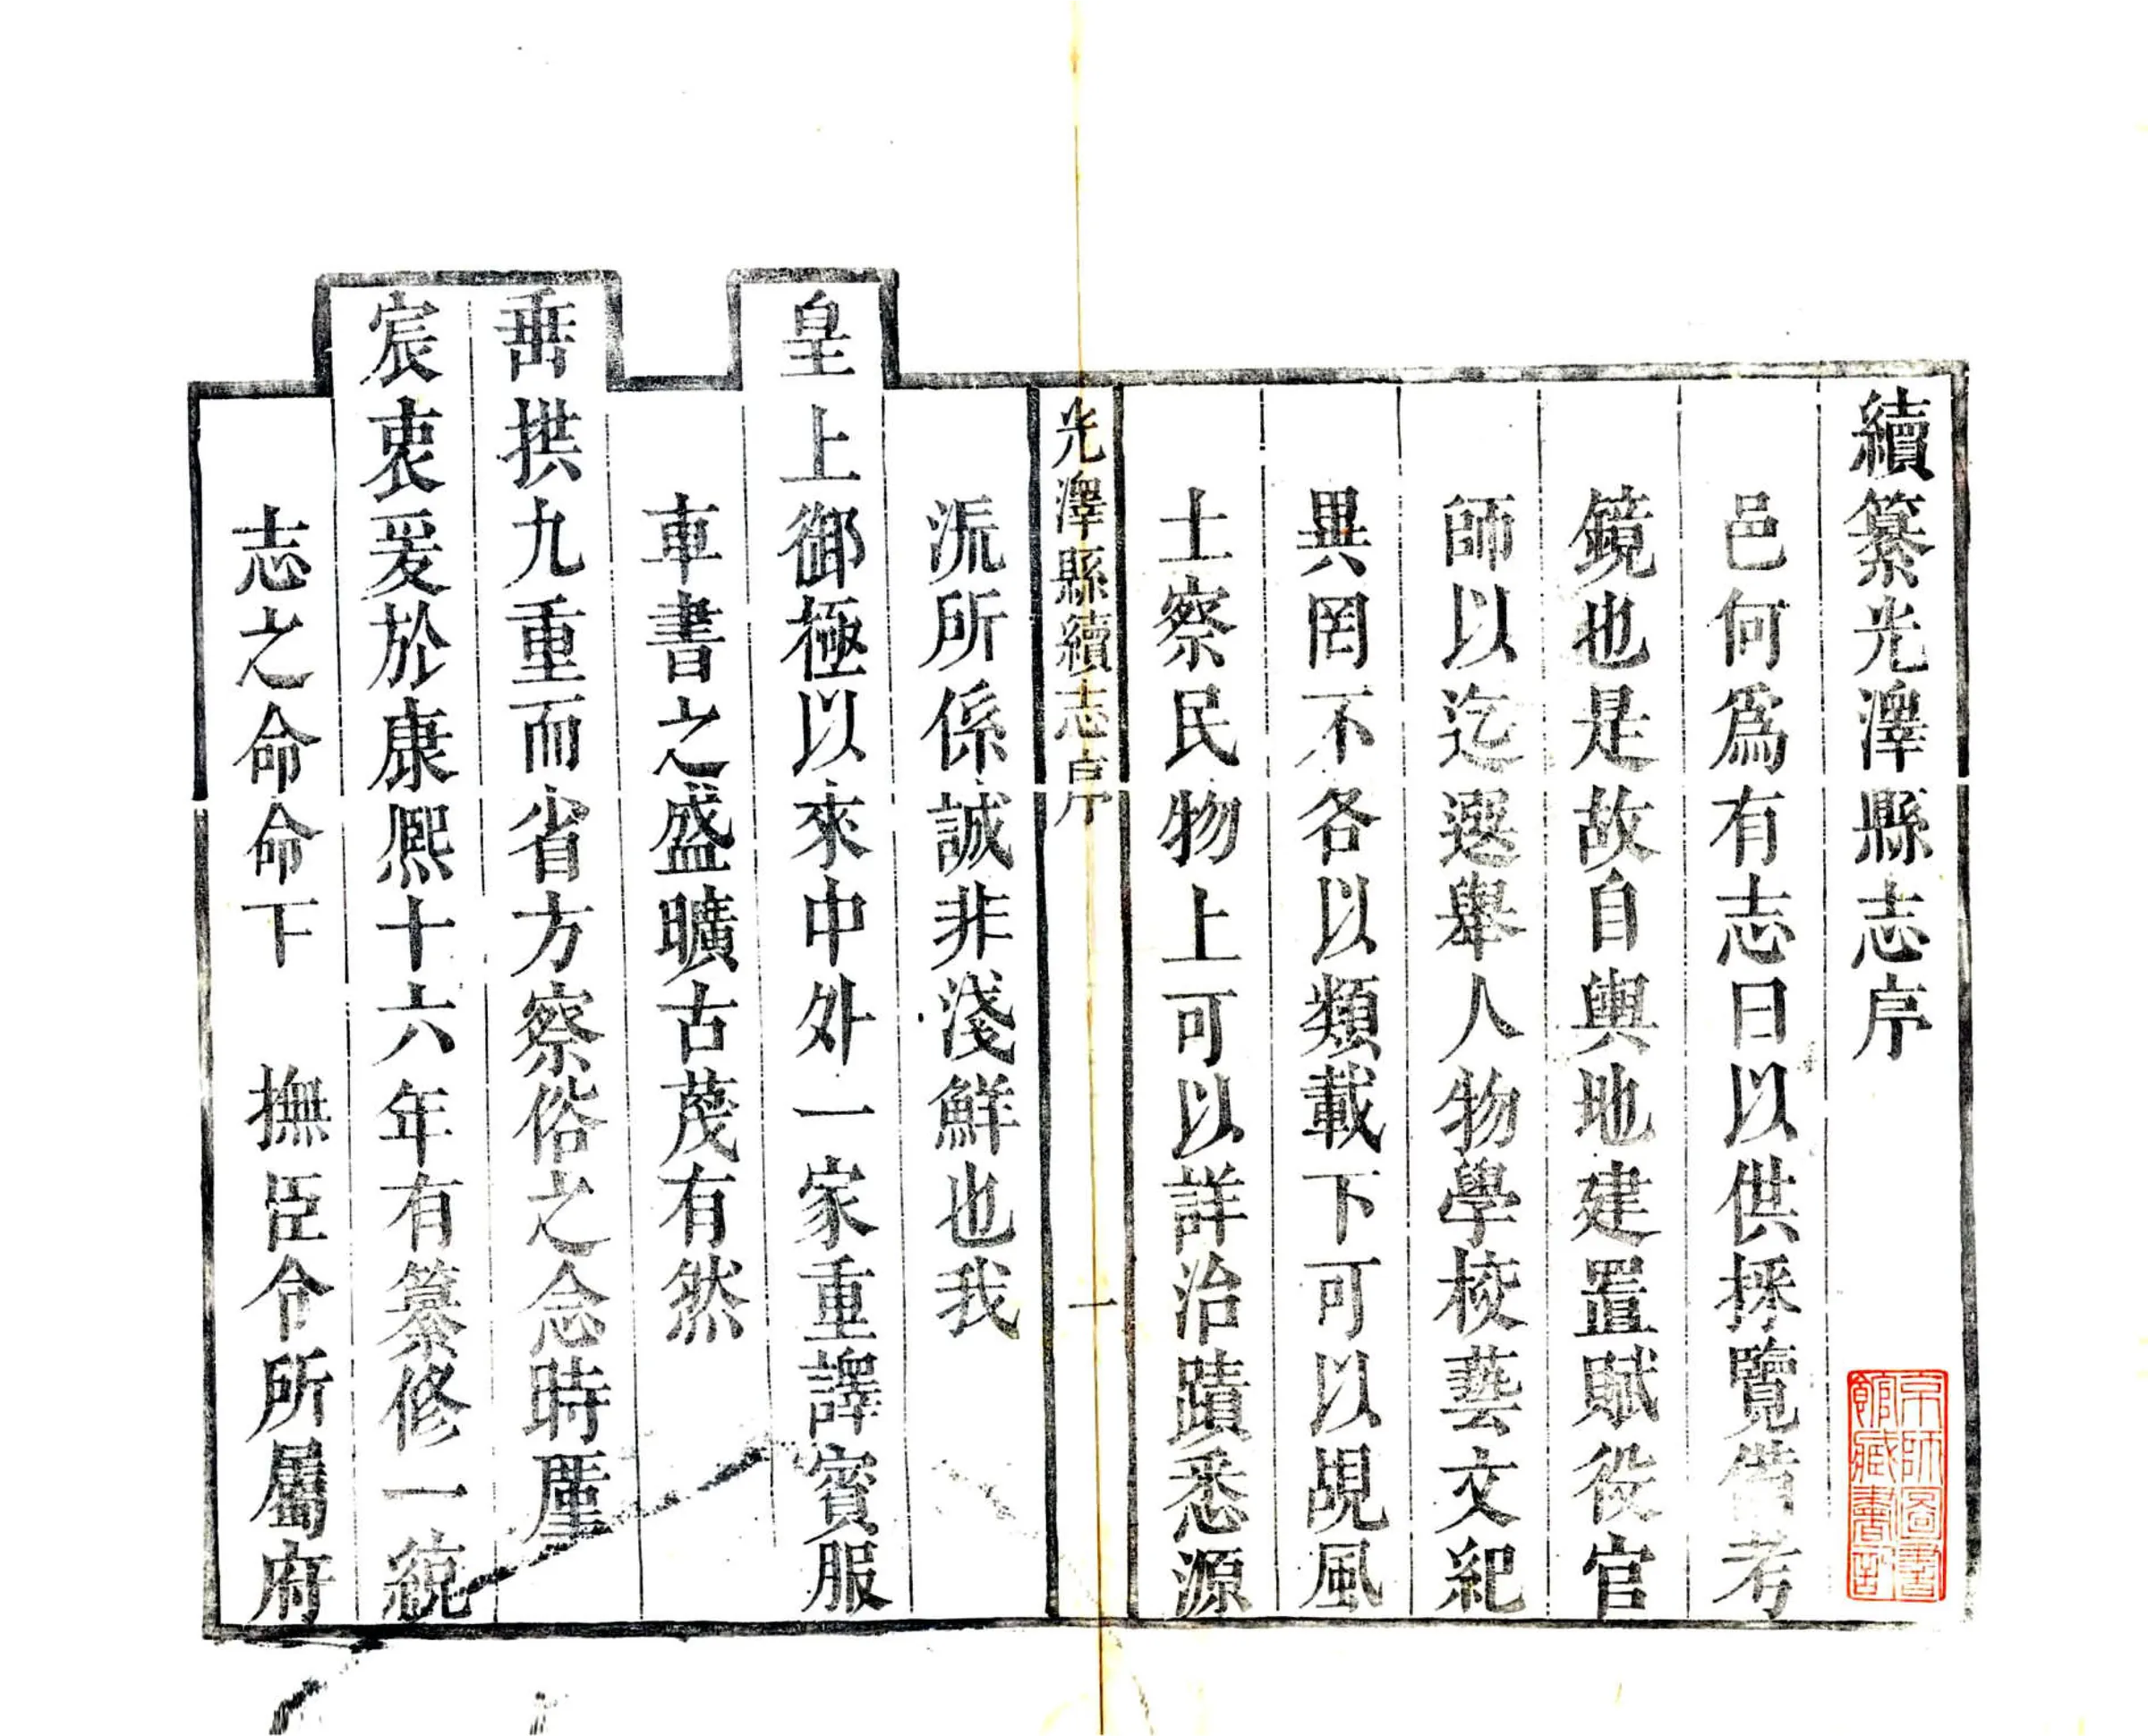 續纂光澤縣志序
邑何爲有志曰以供採覽備考
鏡也是故自輿地建置賦役官
師以迄選舉人物學校藝文紀
異罔不各以類載下可以覘風
土察民物上可以詳治蹟悉源
光澤縣續志序
一
流所係誠非淺鮮也我
皇上御極以來中外一家重譯賓服
車書之盛曠古茂有然
垂拱九重而省方察俗之念時厪
宸衷爰於康熈十六年有纂修一統
志之命命下　撫臣令所屬府
京師圖書
館藏書記